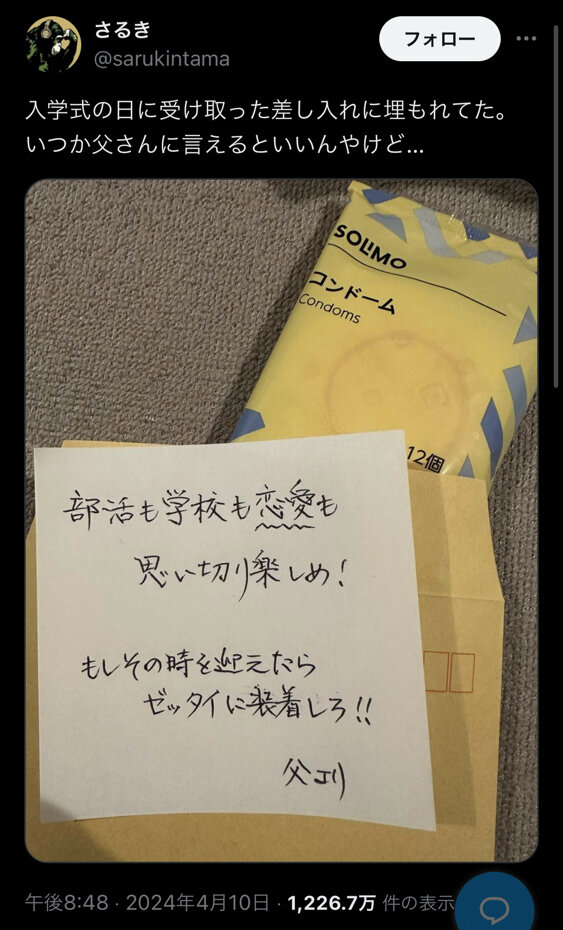 さるき
フォロー
@sarukintama
入学式の日に受け取った差し入れに埋もれてた。
いつか父さんに言えるといいんやけど...
SOLIMO
コンドーム
Condoms
12個
部活も学校も恋愛も
思い切り楽しめ!
もしその時を迎えたら
ゼッタイに装着しろ!!
父より
午後8:48 · 2024年4月10日 · 1,226.7万 件の表示